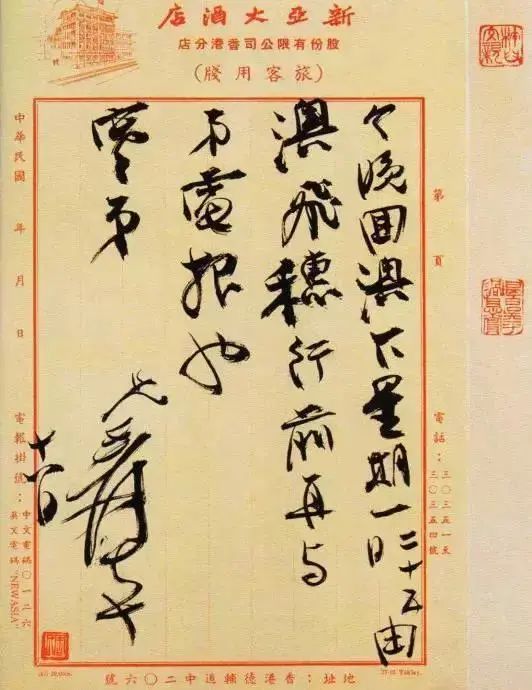 新亞大酒店
股份有限公司香港分店
（旅客用牋）
第 頁
電話：三〇三五一至三〇三五四號
今晚囬澳下星期一日二十五由
澳飛穗行前再与
弟電報也
弟 兄爰
中華民國 年 月 日
電報掛號：中文電碼〇一二六
英文電碼"NEWASIA"
地址：香港德輔道中二〇六號